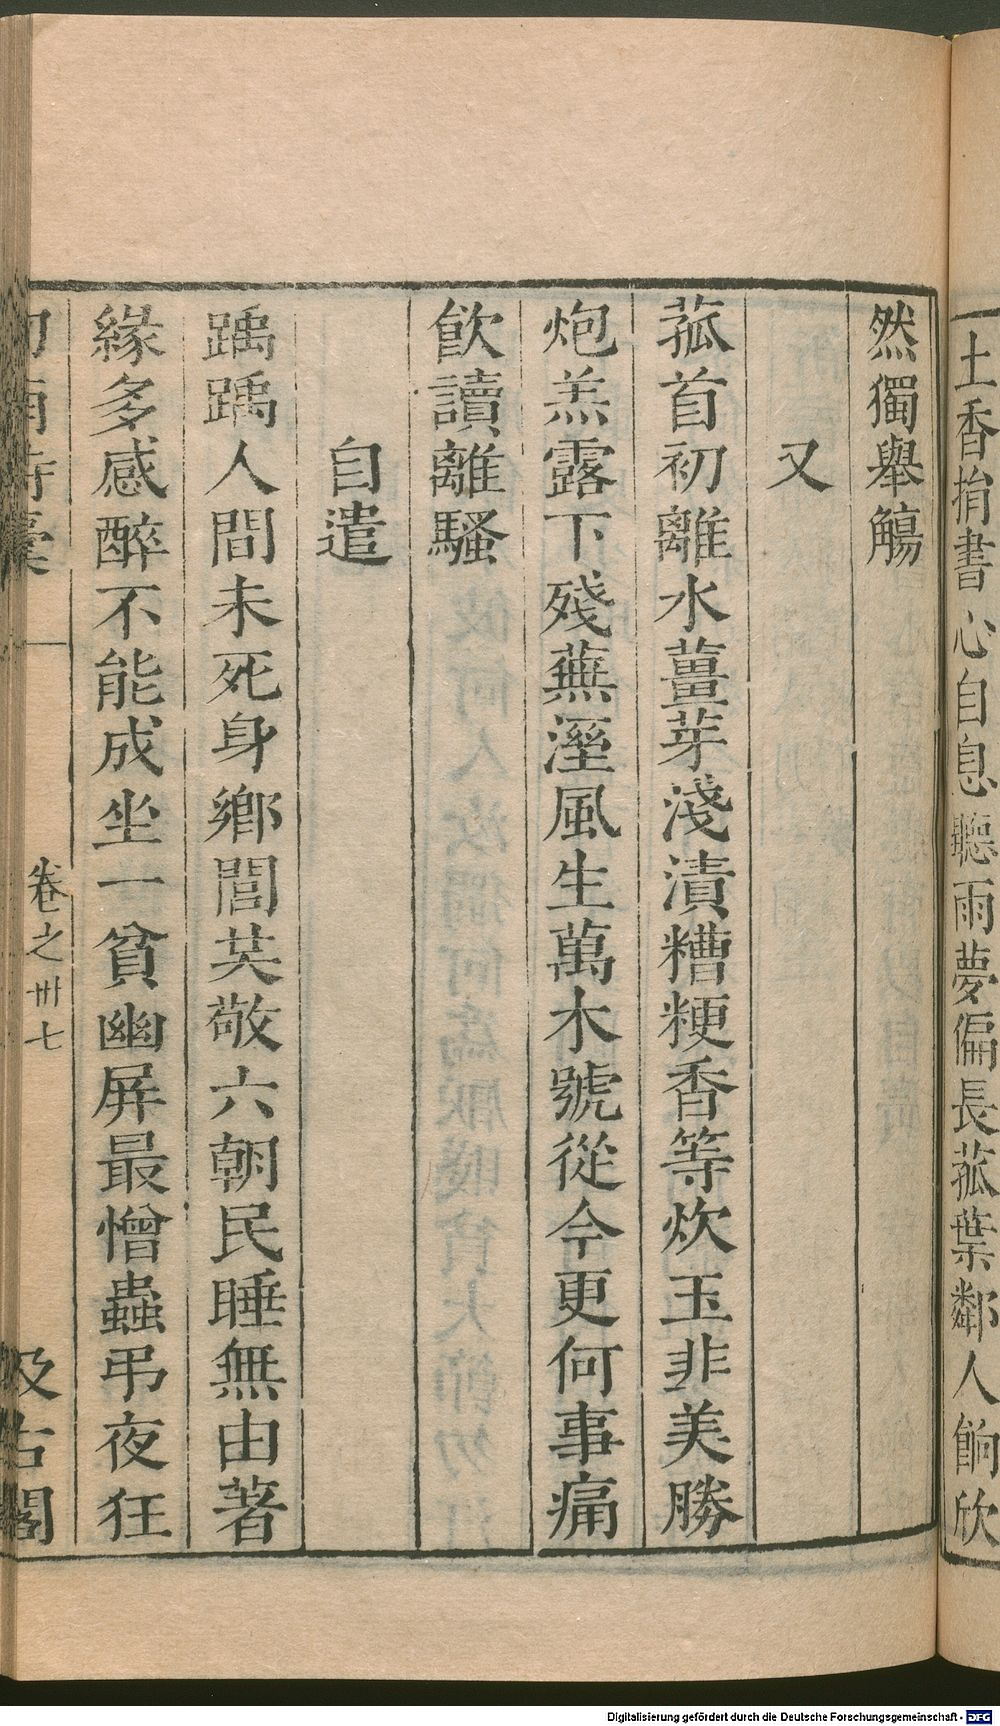 土香捐書心自息聽雨夢偏長菰葉鄰人餉欣
然獨舉觴
又
菰首初離水薑芽淺漬糟粳香等炊玉非美勝
炮羔露下殘蕪溼風生萬木號從今更何事痛
飮讀離騷
自遣
踽踽人間未死身鄉閭英敬六朝民睡無由著
緣多感醉不能成坐一貧幽屏最憎蟲弔夜狂
卷之卅七
及古閣
Digitalisierung gefördert durch die Deutsche Forschungsgemeinschaft - DFG